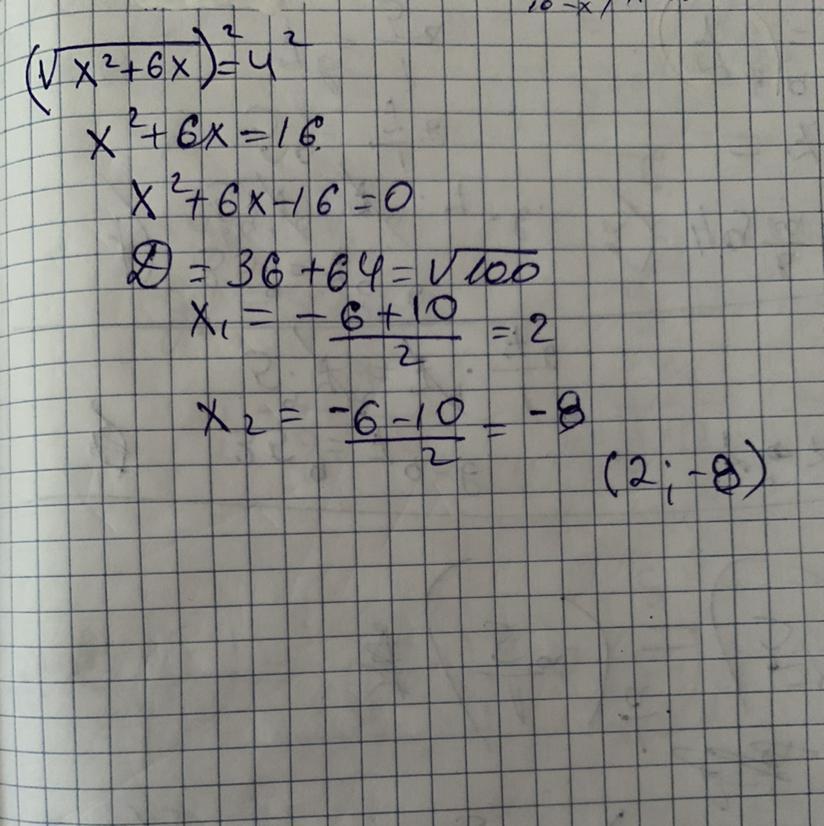 (√x²+6x)²=4²
x²+6x=16
x²+6x-16=0
D=36+64=√100
x₁ = -6+10/2 = 2
x₂ = -6-10/2 = -8
(2;-8)